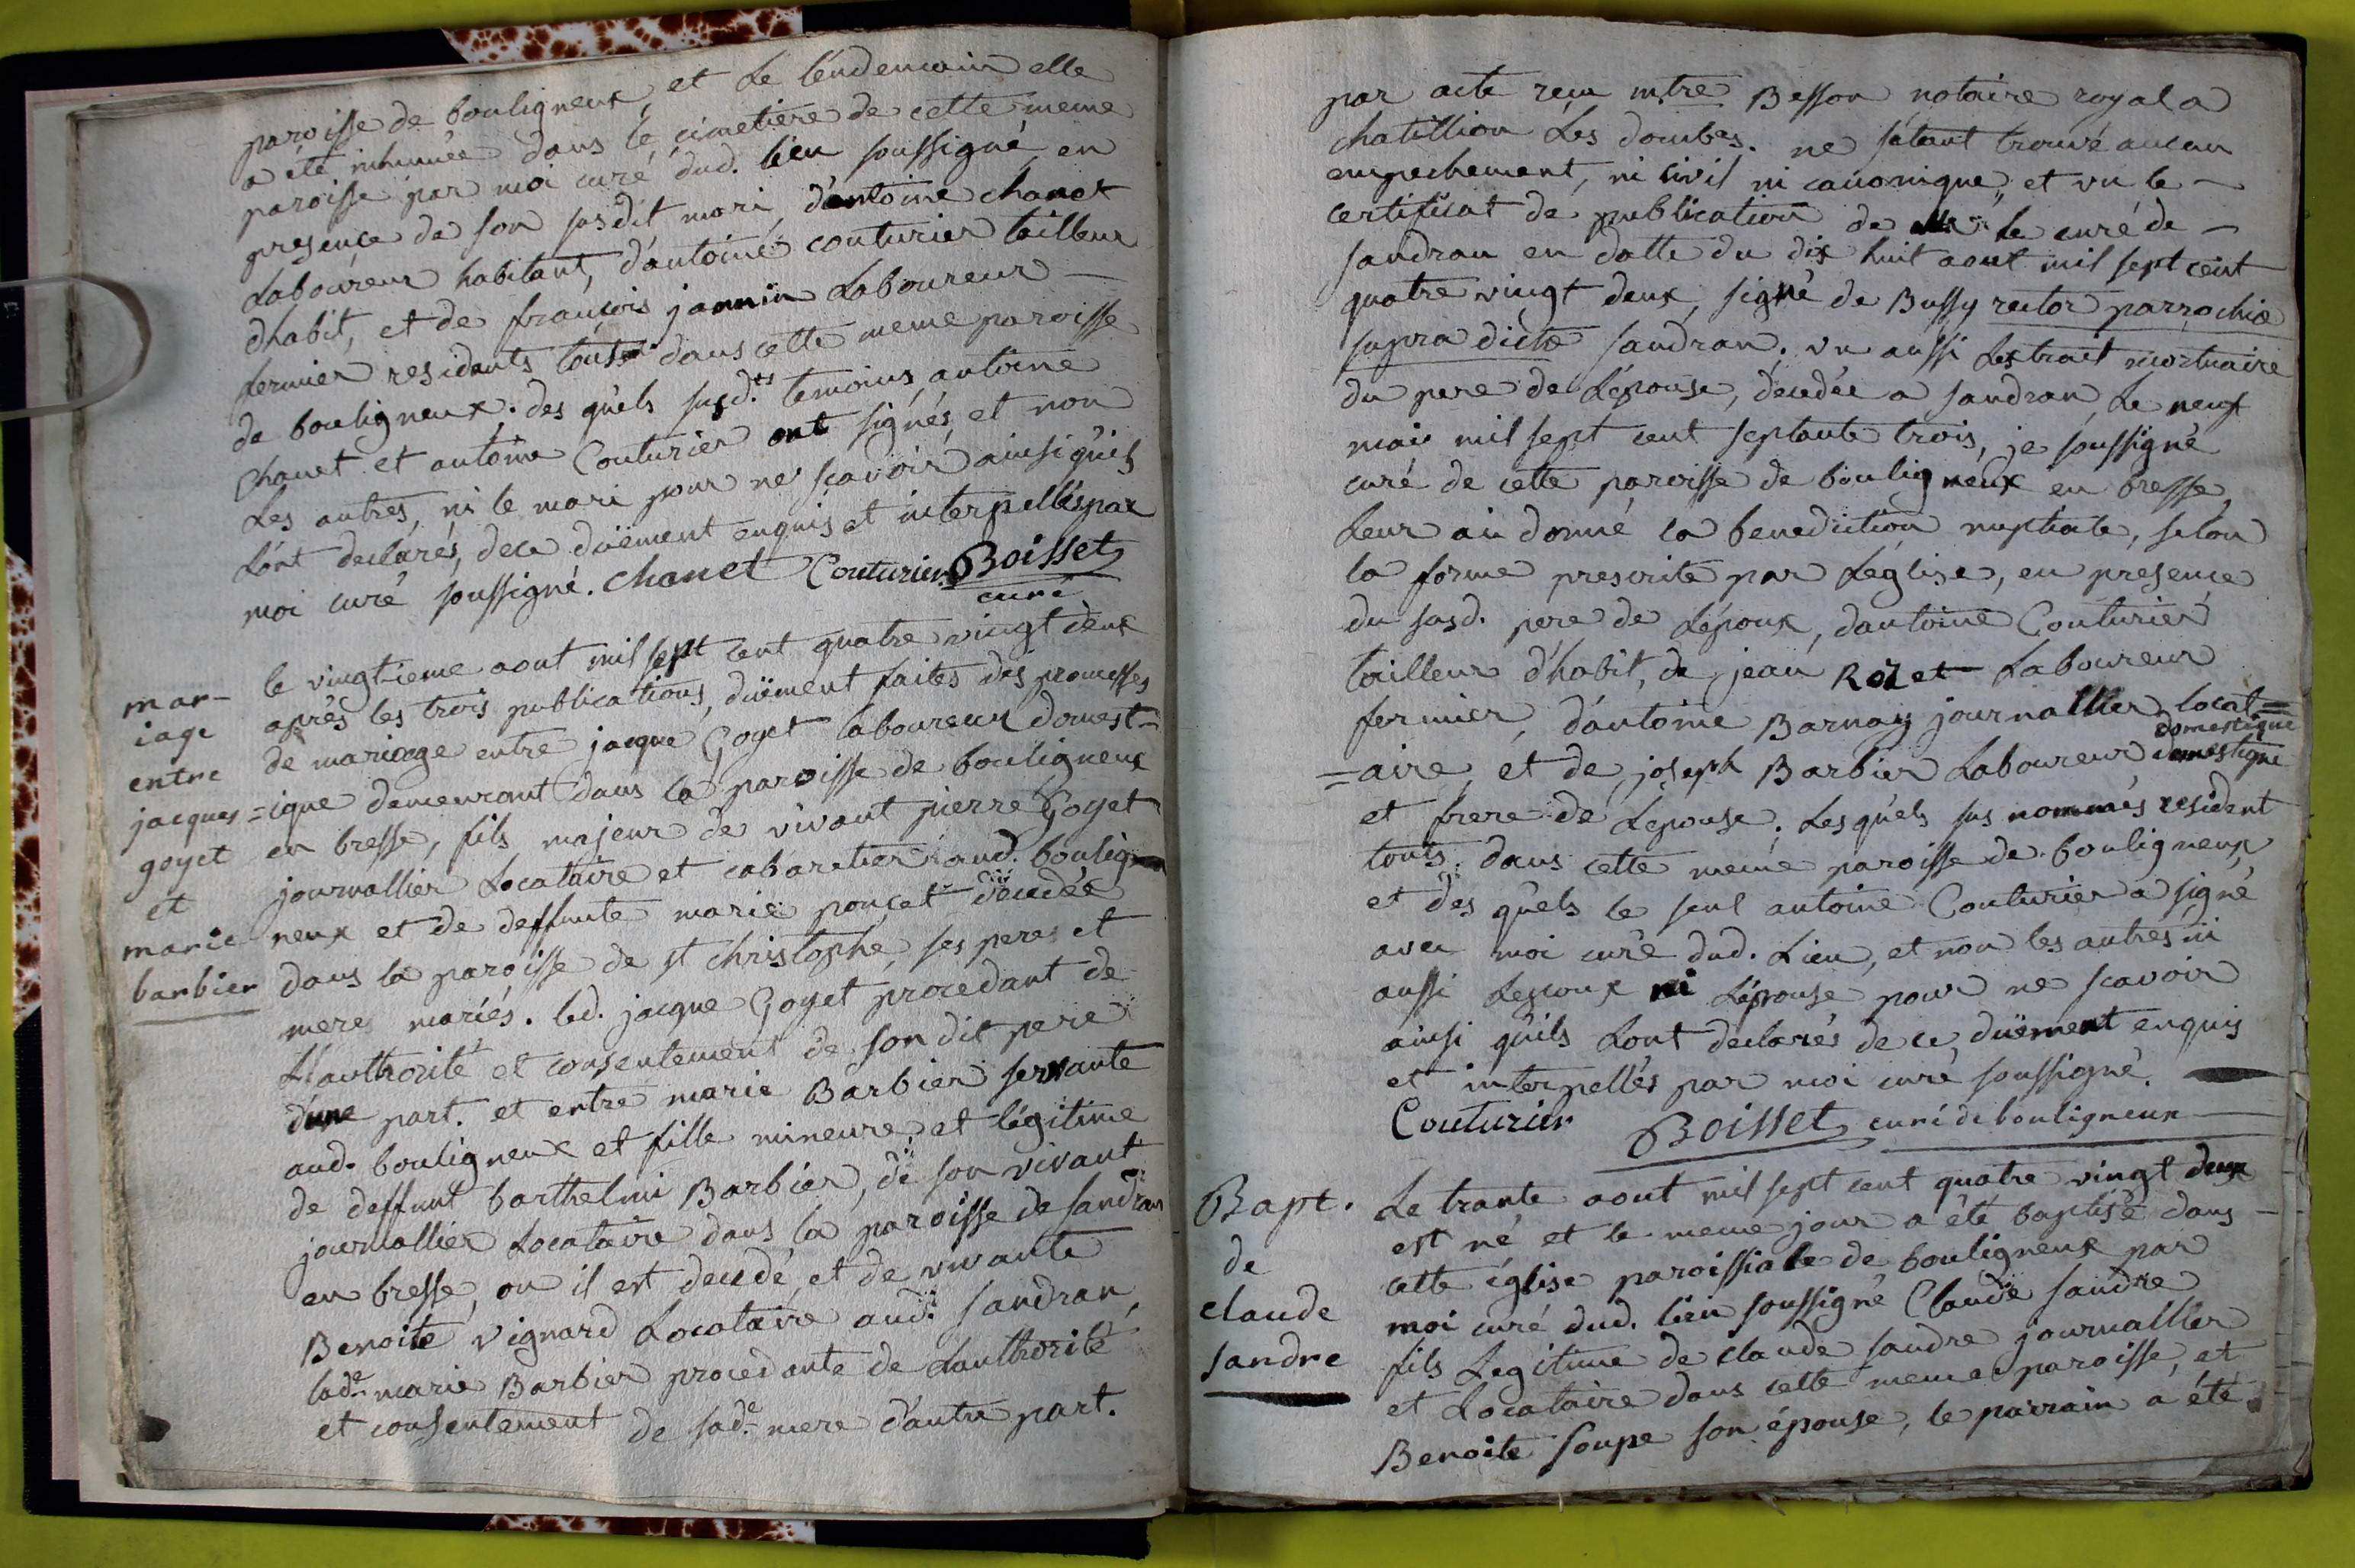 paroisse de bouligneux, et Le lendemain elle
a été inhumée dans le cimetiere de cette meme
paroisse par moi curé dud. lieu soussigné en
presence de son susdit mari, d'antoine chanet
Laboureur habitant, d'antoine couturier tailleur
d'habit, et de françois jannin Laboureur –
fermier residants tous dans cette meme paroisse
de bouligneux. des quels susd.ts temoins, antoine
Chanet et antoine Couturier ont signés, et non
Les autres, ni le mari pour ne scavoir ainsi qu'ils
L'ont declarés, dece düement enquis et interpellés par
moi curé soussigné. chanet Couturier Boisset
curé
mar-
iage
entre
jacques
goyet
et
marie
barbier
le vingtieme aout mil sept cent quatre vingt deux
après les trois publications, düement faites des promesses
de mariage entre jacque Goyet laboureur domest-
=ique demeurant dans la paroisse de bouligneux
en bresse, fils majeur de vivant pierre Goyet
journallier Locataire et cabaretier aud. boulig-
neux et de deffunte marie poncet décedée
dans la paroisse de st christophe, ses peres et
meres mariés. led. jacque Goyet procedant de
L'authorité et consentement de son dit pere
d'une part. et entre marie Barbier servante
aud. bouligneux et fille mineure et légitime
de deffunt barthelmi Barbier, de son vivant
journallier Locataire dans la paroisse de sandran
en bresse, ou il est decedé, et de vivante
Benoite vignard Locataire aud. sandran,
lad.e marie Barbier procedante de Lauthorité
et consentement de sad.e mere d'autre part.
par acte reçu mtre Besson notaire royal a
chatillion Les dombes. ne s'étant trouvé aucun
empechement, ni civil ni canonique, et vu le –
certificat de publication de le curé de –
sandran en datte du dix huit aout mil sept cent
quatre vingt deux, signé de Bussy rector parrochiæ
supra dictæ sandran. vu aussi Lextrait mortuaire
du pere de L'épouse, décedée a sandran, Le neuf
mai mil sept cent septante trois, je soussigné
curé de cette paroisse de bouligneux en bresse,
Leur ai donné la benediction nuptiale, selon
la forme prescrite par L'église, en presence
du susd. pere de L'époux, d'antoine Couturier
tailleur d'habit, de jean Rozet Laboureur
fermier, d'antoine Barnay journallier locat=
=aire, et de joseph Barbier Laboureur domestique
domestique
et frere de L'épouse. Lesquels sus nommés resident
tous dans cette meme paroisse de bouligneux
et des quels le seul antoine Couturier a signé
avec moi curé dud. Lieu, et non les autres ni
aussi Lepoux ni L'épouse pour ne scavoir
ainsi qu'ils Lont declarés de ce, düement enquis
et interpellés par moi curé soussigné.
Couturier Boisset curé de bouligneux
Bapt.
de
claude
sandre
Le trante aout mil sept cent quatre vingt deux
est né et le meme jour a été baptisé dans –
cette église paroissiale de bouligneux par
moi curé dud. lieu soussigné Claude sandre
fils Legitime de claude sandre journallier
et Locataire dans cette meme paroisse, et
Benoite soupe son épouse, le parrain a été